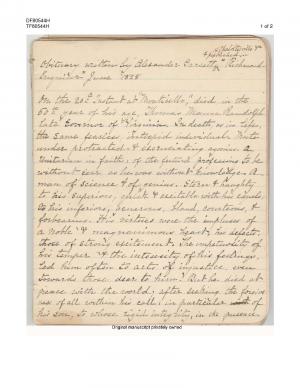 DF80544H
TF80544H
1 of 2
Charlottesville &
Obituary written by Alexander Garrett, Richmond
Enquirer June 1828
On the 20th Instant at "Monticello," died, in the
60th year of his age, Thomas Mann Randolph
late Governor of Virginia. Undeath, he was
the same fearless, intrepid individual. While
under protracted & excruciating agonies. A
Unitarian in faith, of the future professing to be
without fear as he was without knowledge. A
man of Science & of genius. Stern & haughty
to his Superiors, while equitable with his equals
to his inferiors, generous, bland, courteous, &
forbearing. His virtues were the impulses of
a noble & magnanimous heart, his defects,
those of strong excitement. The impetuosity of
his temper & the intensity of his feelings,
led him often to acts of injustice, even
towards those dear to him. But he died at
peace with the world, after seeking the forgive
ness of all within his call, in particular of
his son, to whose rigid integrity, in the presence
Original manuscript privately owned